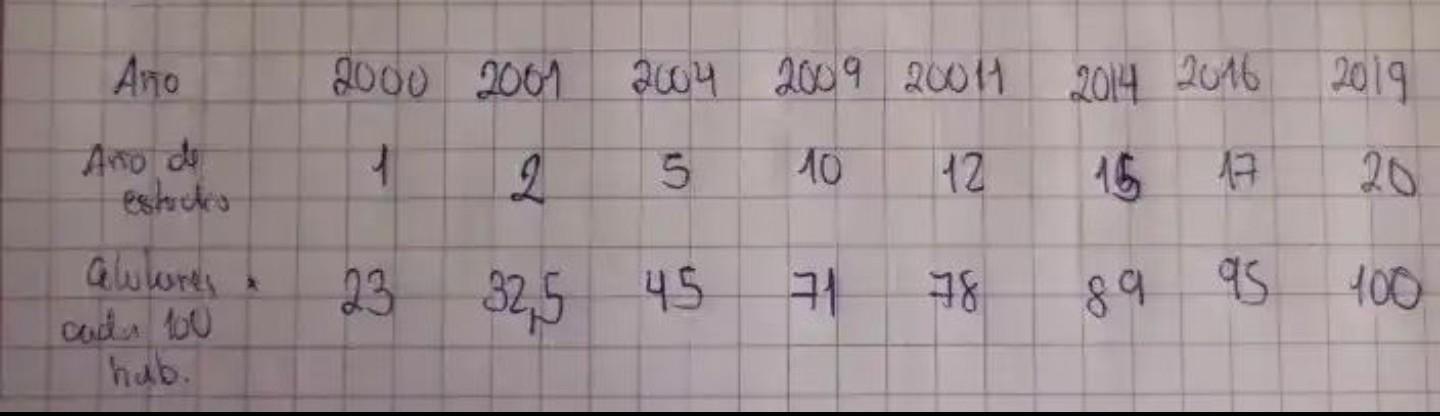 Año 2000 2001 2004 2009 20011 2014 2016 2019
Año de 1 2 5 10 12 15 17 20
estudio
Celulares x 23 32,5 45 71 78 89 95 100
cada 100
hab.